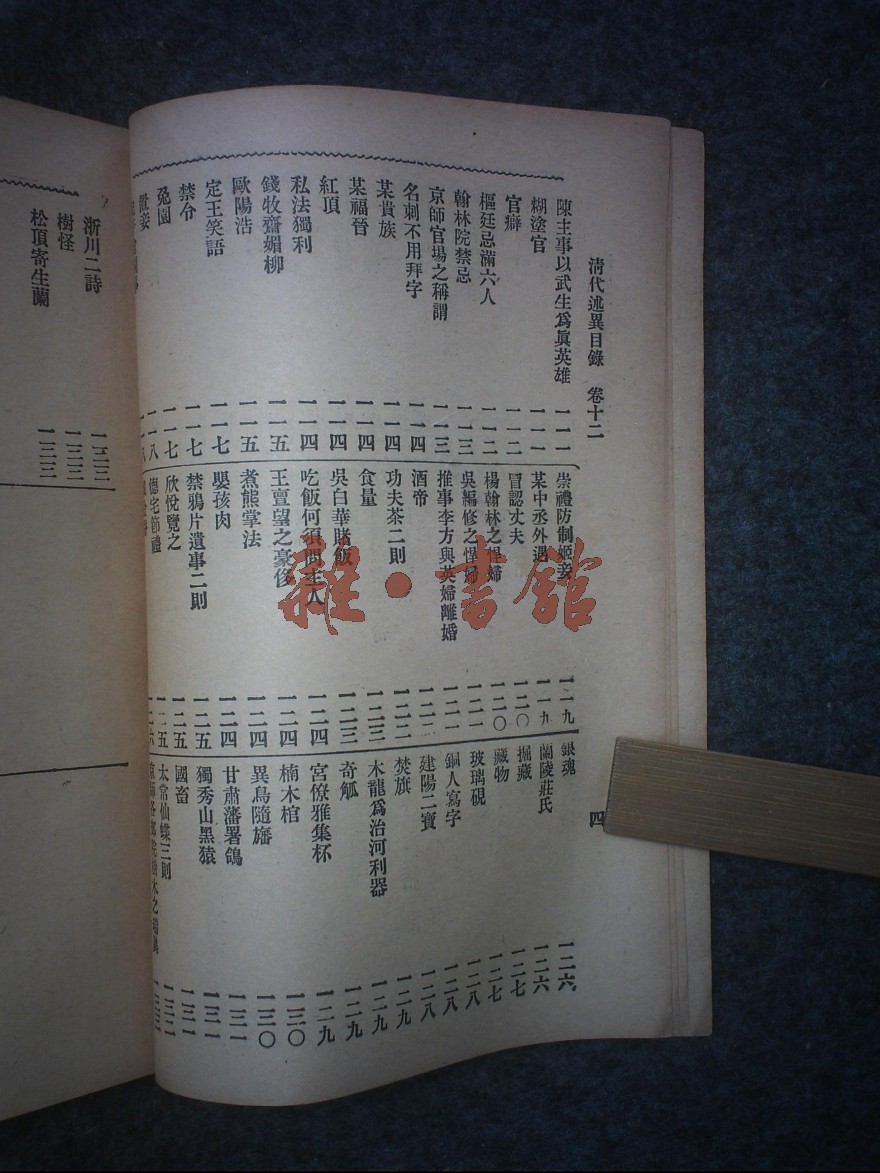 清代述異目錄 卷十二
陳主事以武生爲眞英雄 一一一
糊塗官 一一一
官癖 一一二
樞廷忌滿六人 一一二
翰林院禁忌 一一三
京師官場之稱謂 一一三
名刺不用拜字 一一四
某貴族 一一四
某福晉 一一四
紅頂 一一四
私法獨利 一一四
錢牧齋媚柳 一一五
歐陽浩 一一五
定王笑語 一一七
禁令 一一七
兔園 一一七
置妾 一一八
崇禮防制姬妾 一一九
某中丞外遇 一一九
冒認丈夫 一二〇
楊翰林之悍婦 一二〇
吳編修之悍婦 一二一
推事李方與英婦離婚 一二一
酒帝 一二二
功夫茶二則 一二二
食量 一二三
吳白華賭飯 一二三
吃飯何須問主人 一二四
王亶望之豪侈 一二四
煮熊掌法 一二四
嬰孩肉 一二四
禁鴉片遺事二則 一二五
欣悅覽之 一二五
德宅節禮 一二五
一二六
銀魂 一二六
蘭陵莊氏 一二六
掘藏 一二七
藏物 一二七
玻璃硯 一二八
銅人寫字 一二八
建陽二寶 一二八
焚旗 一二九
木龍爲治河利器 一二九
奇觚 一二九
宮僚雅集杯 一二九
楠木棺 一三〇
異鳥隨旛 一三〇
甘肅藩署鴿 一三一
獨秀山黑猿 一三一
國畜 一三一
太常仙蝶三則 一三二
四
浙川二詩 一三三
樹怪 一三三
松頂寄生蘭 一三三
雜·書館